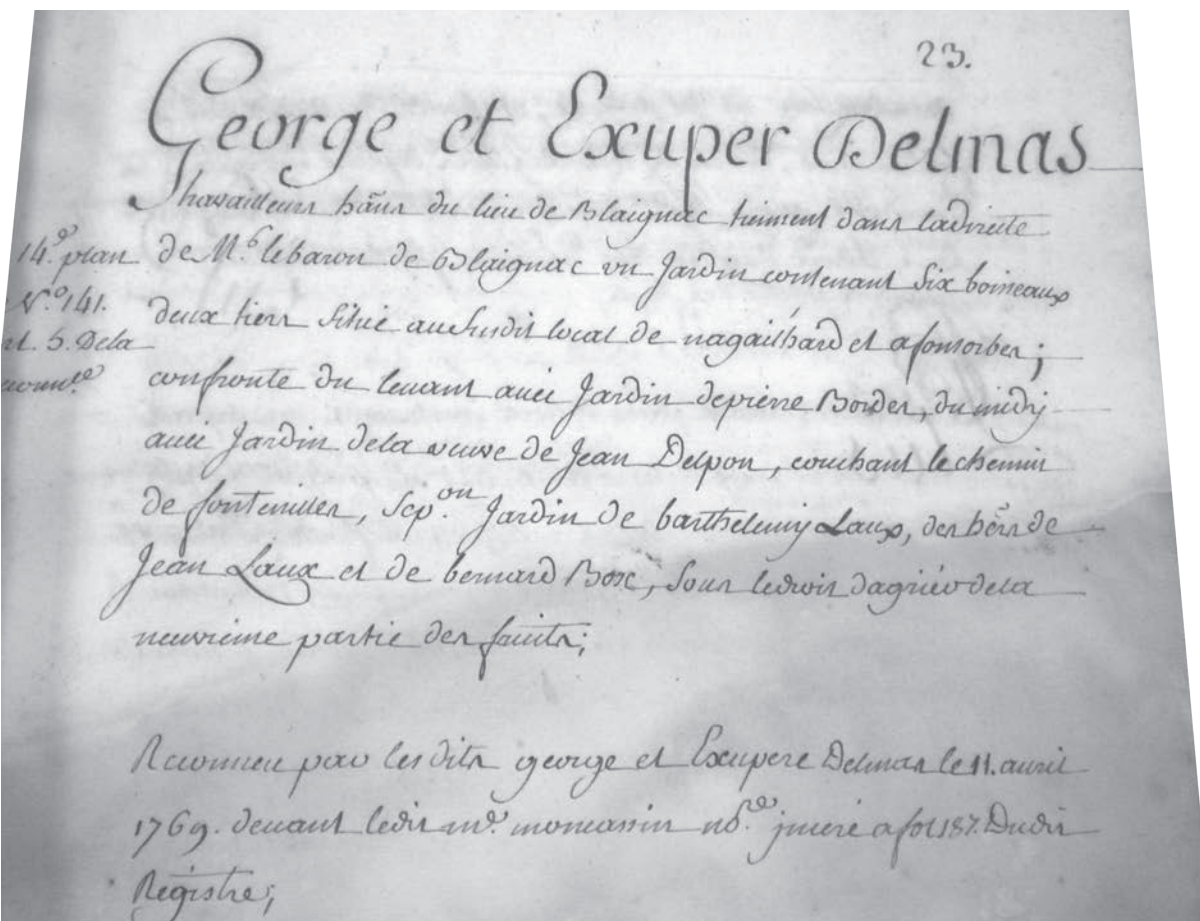 23.
George et Exuper Delmas
Travailleurs hãns du lieu de Blaignac tienment dans ladirecte
14.e plan
de M.r lebaron de Blaignac un Jardin contenant six boineaux
N.o 141.
deux tiers situé aususdit local de nagailhard et afonsorbes;
art. 5. Dela
confronte du levant avec Jardin depierre Bordes, du midy
avec Jardin dela veuve de Jean Delpon, couchant le chemin
de fontenilles, Sep.on Jardin de barthelemy Laux, des hẽrs de
Jean Laux et de bernard Bosc, sous ledroit dagrier dela
neuvieme partie des fruits;
Reconneu par les dits george et Exupere Delmas le 11. avril
1769. devant ledit m.e moncassin no.re jnceré a fol 187. Dudit
Régistre;